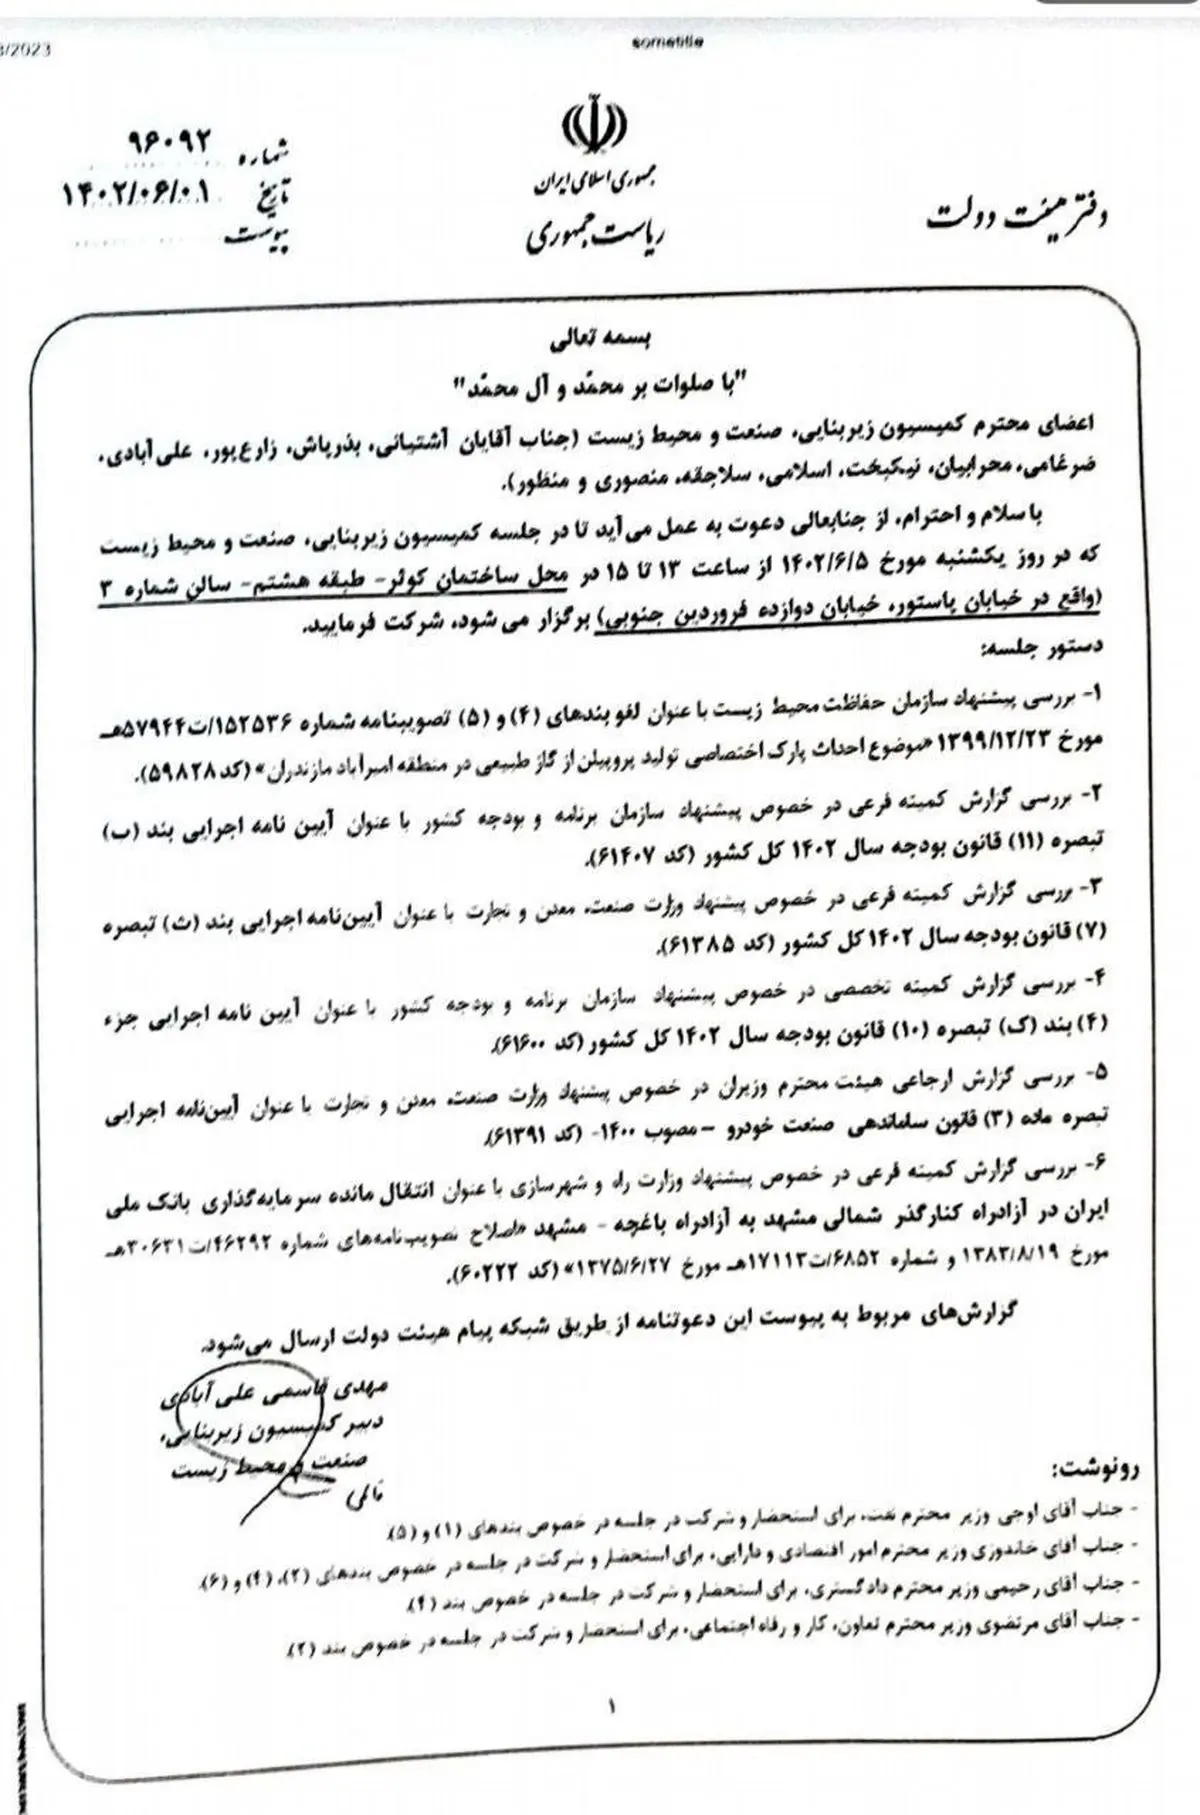 3/2023
sometitle
جمهوری اسلامی ایران
ریاست جمهوری
دفتر هیئت دولت
شماره ۹۶۰۹۲
تاریخ ۱۴۰۲/۰۶/۰۱
پیوست
بسمه تعالی
"با صلوات بر محمّد و آل محمّد"
اعضای محترم کمیسیون زیربنایی، صنعت و محیط زیست (جناب آقایان آشتیانی، بذرپاش، زارع‌پور، علی‌آبادی،
ضرغامی، محرابیان، نیکبخت، اسلامی، سلاجقه، منصوری و منظور).
با سلام و احترام، از جنابعالی دعوت به عمل می‌آید تا در جلسه کمیسیون زیربنایی، صنعت و محیط زیست
که در روز یکشنبه مورخ ۱۴۰۲/۶/۵ از ساعت ۱۳ تا ۱۵ در محل ساختمان کوثر- طبقه هشتم- سالن شماره ۳
(واقع در خیابان پاستور، خیابان دوازده فروردین جنوبی) برگزار می شود، شرکت فرمایید.
دستور جلسه:
۱- بررسی پیشنهاد سازمان حفاظت محیط زیست با عنوان لغو بندهای (۴) و (۵) تصویبنامه شماره ۱۵۲۵۳۶/ت۵۷۹۴۴هـ
مورخ ۱۳۹۹/۱۲/۲۳ «موضوع احداث پارک اختصاصی تولید پروپیلن از گاز طبیعی در منطقه امیرآباد مازندران» (کد ۵۹۸۲۸).
۲- بررسی گزارش کمیته فرعی در خصوص پیشنهاد سازمان برنامه و بودجه کشور با عنوان آیین نامه اجرایی بند (ب)
تبصره (۱۱) قانون بودجه سال ۱۴۰۲ کل کشور (کد ۶۱۴۰۷).
۳- بررسی گزارش کمیته فرعی در خصوص پیشنهاد وزارت صنعت، معدن و تجارت با عنوان آیین‌نامه اجرایی بند (ث) تبصره
(۷) قانون بودجه سال ۱۴۰۲ کل کشور (کد ۶۱۳۸۵).
۴- بررسی گزارش کمیته تخصصی در خصوص پیشنهاد سازمان برنامه و بودجه کشور با عنوان آیین نامه اجرایی جزء
(۴) بند (ک) تبصره (۱۰) قانون بودجه سال ۱۴۰۲ کل کشور (کد ۶۱۶۰۰).
۵- بررسی گزارش ارجاعی هیئت محترم وزیران در خصوص پیشنهاد وزارت صنعت، معدن و تجارت با عنوان آیین‌نامه اجرایی
تبصره ماده (۳) قانون ساماندهی صنعت خودرو – مصوب ۱۴۰۰- (کد ۶۱۳۹۱).
۶- بررسی گزارش کمیته فرعی در خصوص پیشنهاد وزارت راه و شهرسازی با عنوان انتقال مانده سرمایه‌گذاری بانک ملی
ایران در آزادراه کنارگذر شمالی مشهد به آزادراه باغچه - مشهد «اصلاح تصویب‌نامه‌های شماره ۴۶۲۹۲/ت۳۰۶۳۱هـ
مورخ ۱۳۸۳/۸/۱۹ و شماره ۶۸۵۲/ت۱۷۱۱۳هـ مورخ ۱۳۷۵/۶/۲۷» (کد ۶۰۲۲۲).
گزارش‌های مربوط به پیوست این دعوتنامه از طریق شبکه پیام هیئت دولت ارسال می‌شود.
مهدی قاسمی علی آبادی
دبیر کمیسیون زیربنایی،
صنعت و محیط زیست
رونوشت:
- جناب آقای اوجی وزیر محترم نفت، برای استحضار و شرکت در جلسه در خصوص بندهای (۱) و (۵).
- جناب آقای خاندوزی وزیر محترم امور اقتصادی و دارایی، برای استحضار و شرکت در جلسه در خصوص بندهای (۲)، (۴) و (۶).
- جناب آقای رحیمی وزیر محترم دادگستری، برای استحضار و شرکت در جلسه در خصوص بند (۴).
- جناب آقای مرتضوی وزیر محترم تعاون، کار و رفاه اجتماعی، برای استحضار و شرکت در جلسه در خصوص بند (۲).
۱